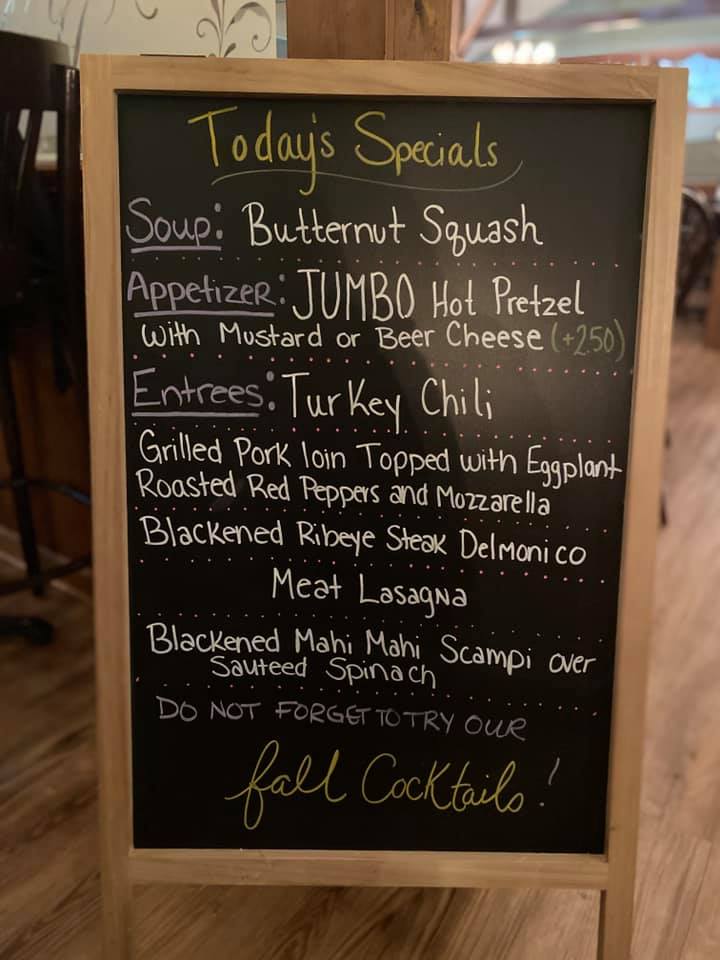 Today's Specials
Soup: Butternut Squash
Appetizer: JUMBO Hot Pretzel
with Mustard or Beer Cheese (+2.50)
Entrees: Turkey Chili
Grilled Pork loin Topped with Eggplant
Roasted Red Peppers and Mozzarella
Blackened Ribeye Steak Delmonico
Meat Lasagna
Blackened Mahi Mahi Scampi over
Sauteed Spinach
DO NOT FORGET TO TRY OUR
fall Cocktails!